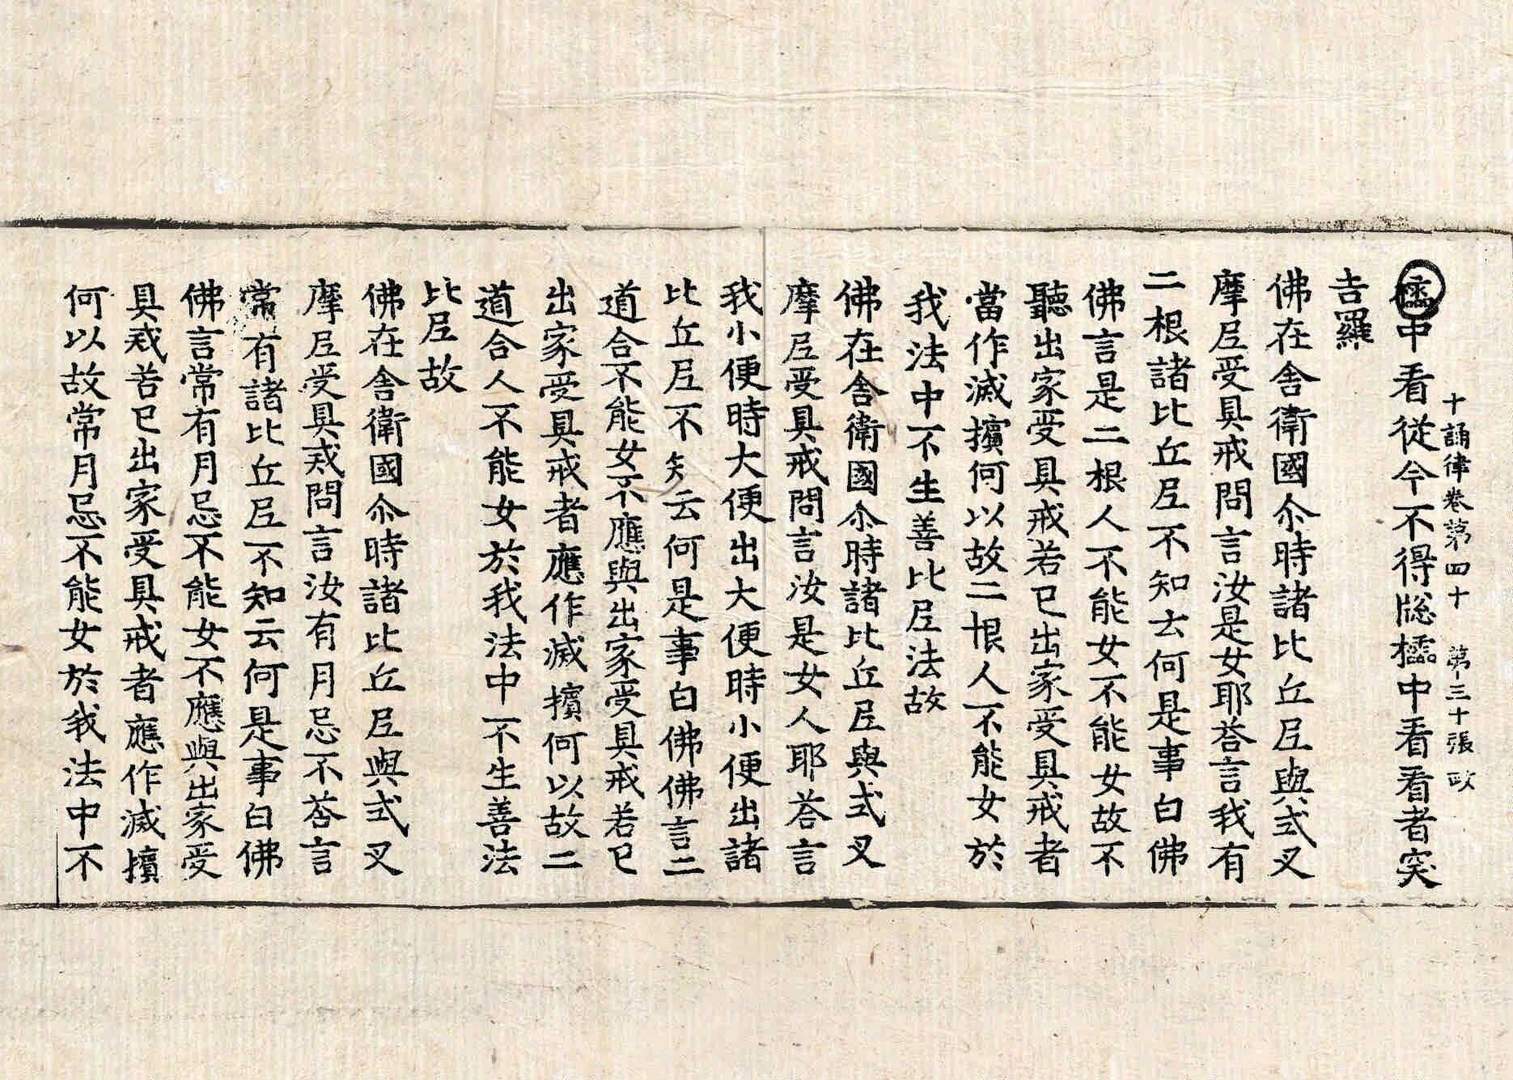 十誦律卷第四十　第三十張　政
櫺中看從今不得牎櫺中看看者突
吉羅
佛在舍衛國尒時諸比丘尼與式叉
摩尼受具戒問言汝是女耶荅言我有
二根諸比丘尼不知云何是事白佛
佛言是二根人不能女不能女故不
聽出家受具戒若已出家受具戒者
當作滅擯何以故二根人不能女於
我法中不生善比尼法故
佛在舍衛國尒時諸比丘尼與式叉
摩尼受具戒問言汝是女人耶荅言
我小便時大便出大便時小便出諸
比丘尼不知云何是事白佛佛言二
道合不能女不應與出家受具戒若已
出家受具戒者應作滅擯何以故二
道合人不能女於我法中不生善法
比尼故
佛在舍衛國尒時諸比丘尼與式叉
摩尼受具戒問言汝有月忌不荅言
常有諸比丘尼不知云何是事白佛
佛言常有月忌不能女不應與出家受
具戒若已出家受具戒者應作滅擯
何以故常月忌不能女於我法中不